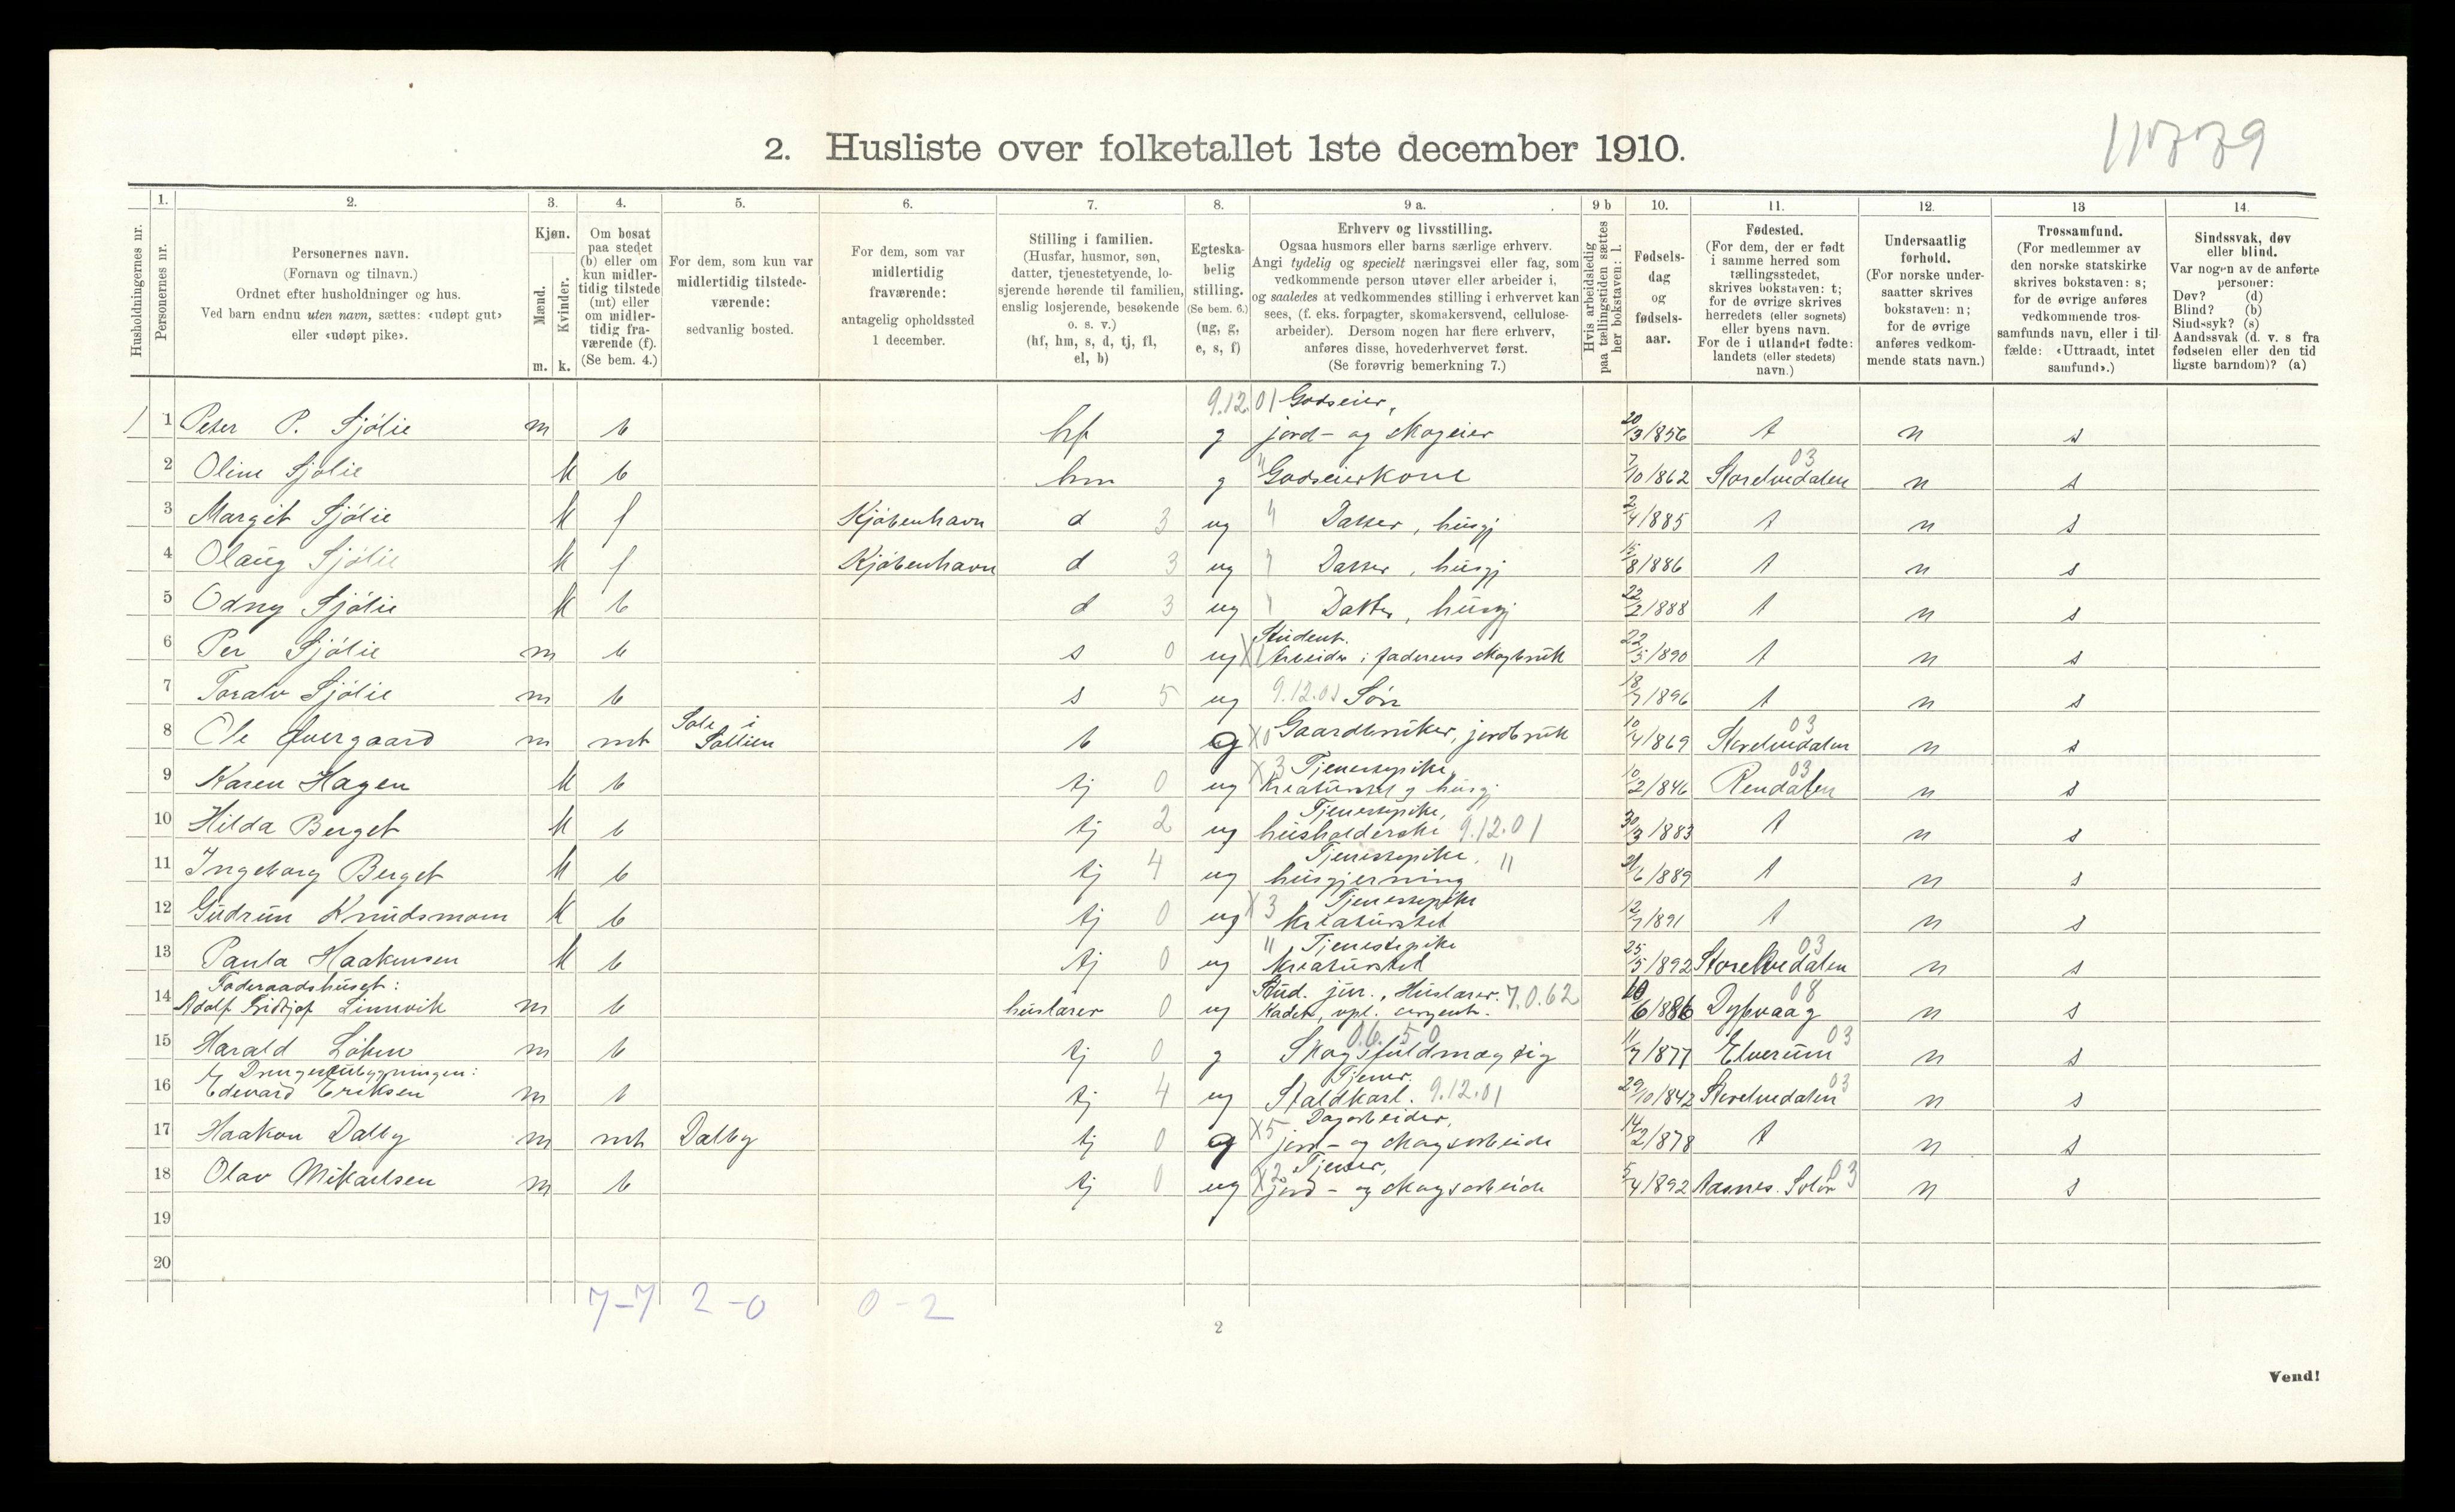 2. Husliste over folketallet 1ste december 1910.
1. 2. 3. 4. 5. 6. 7. 8. 9 a. 9 b 10. 11. 12. 13 14.
Husholdningernes nr.
Personernes nr.
Personernes navn.
(Fornavn og tilnavn.)
Ordnet efter husholdninger og hus.
Ved barn endnu uten navn, sættes: «udøpt gut»
eller «udøpt pike».
Kjøn.
Mænd.
Kvinder.
m. k.
Om bosat
paa stedet
(b) eller om
kun midler-
tidig tilstede
(mt) eller
om midler-
tidig fra-
værende (f).
(Se bem. 4.)
For dem, som kun var
midlertidig tilstede-
værende:
sedvanlig bosted.
For dem, som var
midlertidig
fraværende:
antagelig opholdssted
1 december.
Stilling i familien.
(Husfar, husmor, søn,
datter, tjenestetyende, lo-
sjerende hørende til familien,
enslig losjerende, besøkende
o. s. v.)
(hf, hm, s, d, tj, fl,
el, b)
Egteska-
belig
stilling.
(Se bem. 6.)
(ug, g,
e, s, f)
Erhverv og livsstilling.
Ogsaa husmors eller barns særlige erhverv.
Angi tydelig og specielt næringsvei eller fag, som
vedkommende person utøver eller arbeider i,
og saaledes at vedkommendes stilling i erhvervet kan
sees, (f. eks. forpagter, skomakersvend, cellulose-
arbeider). Dersom nogen har flere erhverv,
anføres disse, hovederhvervet først.
(Se forøvrig bemerkning 7.)
Hvis arbeidsledig
paa tællingstiden sættes
her bokstaven: l.
Fødsels-
dag
og
fødsels-
aar.
Fødested.
(For dem, der er født
i samme herred som
tællingsstedet,
skrives bokstaven: t;
for de øvrige skrives
herredets (eller sognets)
eller byens navn.
For de i utlandet fødte:
landets (eller stedets)
navn.)
Undersaatlig
forhold.
(For norske under-
saatter skrives
bokstaven: n;
for de øvrige
anføres vedkom-
mende stats navn.)
Trossamfund.
(For medlemmer av
den norske statskirke
skrives bokstaven: s;
for de øvrige anføres
vedkommende tros-
samfunds navn, eller i til-
fælde: «Uttraadt, intet
samfund».)
Sindssvak, døv
eller blind.
Var nogen av de anførte
personer:
Døv? (d)
Blind? (b)
Sindssyk? (s)
Aandssvak (d. v. s fra
fødselen eller den tid
ligste barndom)? (a)
9.12.01 Godseier,
1 1 Peter P. Sjölie m b hf g jord- og skogeier 20/3 1856 t n s
2 Oline Sjölie k b hm g " Godseierkone 7/10 1862 Storelvedalen 03 n s
3 Margit Sjölie k f Kjöbenhavn d 3 ug " Datter, husgj 2/4 1885 t n s
4 Olaug Sjölie k f Kjöbenhavn d 3 ug " Datter, husgj 15/8 1886 t n s
5 Odny Sjölie k b d 3 ug " Datter, husgj 22/2 1888 t n s
Student.
6 Per Sjölie m b s 0 ug X1 Arbeider i faderens skogbruk 22/5 1890 t n s
7 Toralv Sjölie m b s 5 ug 9.12.01 Sön 18/7 1896 t n s
8 Ole Övergaard m mt Sole i Sollien b g X0 Gaardbruker, jordbruk 10/4 1869 Storelvedalen 03 n s
X3 Tjenestepike,
9 Karen Hagen k b tj 0 ug kreaturstel g husgj. 10/2 1846 Rendalen 03 n s
Tjenestepike,
10 Hilda Berget k b tj 2 ug husholderske 9.12.01 30/3 1883 t n s
Tjenestepike, "
11 Ingeborg Berget k b tj 4 ug husgjerning 21/6 1889 t n s
X3 Tjenestepike
12 Gudrun Knudsmoen k b tj 0 ug kreaturstel 12/7 1891 t n s
" Tjenestepike
13 Paula Haakensen k b tj 0 ug kreaturstel 25/5 1892 Storelvedalen 03 n s
Föderaadshuset: Stud. jur., Huslærer. 7.0.62
14 Adolf Fridtjof Linnvik m b huslærer 0 ug Kadet, vpl. sergent. 10/6 1886 Dybvaag 08 n s
06.50
15 Harald Löken m b tj 0 g Skogsfuldmægtig 11/7 1877 Elverum 03 n s
I Drengestubygningen: Tjener.
16 Edevard Eriksen m b tj 4 ug Staldkarl. 9.12.01 29/10 1842 Storelvedalen 03 n s
X5 Dagarbeider,
17 Haakon Dalby m mt Dalby tj 0 g jord- og skogsarbeide 14/2 1878 t n s
X2 Tjener,
18 Olav Mikaelsen m b tj 0 ug jord- og skogsarbeide 5/4 1892 Aasnes Solör 03 n s
19
20
7-7 2-0 0-2
2
Vend!